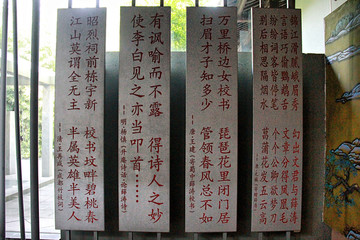 锦江滑腻峨眉秀 幻出文君与薛涛
言语巧偷鹦鹉舌 文章分得凤凰毛
纷纷词客皆停笔 个个公卿欲梦刀
别后相思隔烟水 菖蒲花发五云高
万里桥边女校书 琵琶花里闭门居
扫眉才子知多少 管领春风总不如
——唐·王建《寄蜀中薛涛校书》
有讽喻而不露 得诗人之妙
使李白见之亦当叩首……
——明·杨慎《升庵诗话·论薛涛诗》
昭烈祠前栋宇新 校书坟畔碧桃春
江山莫谓全无主 半属英雄半美人
——清·王再咸《成都竹枝词》